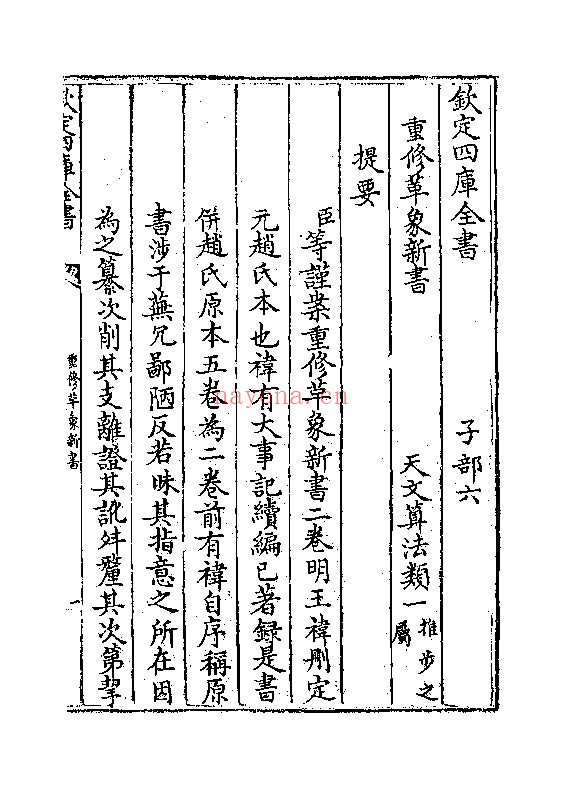 欽定四庫全書 子部六
重修革象新書 天文算法類一推步之屬
提要
臣等謹案重修革象新書二卷明王禕刪定
元趙氏本也禕有大事記續編已著録是書
併趙氏原本五卷為二卷前有禕自序稱原
書涉于蕪冗鄙陋反若昧其指意之所在因
為之纂次削其支離證其訛舛釐其次第挈
欽定四庫全書 重修革象新書 一
nayona.cn